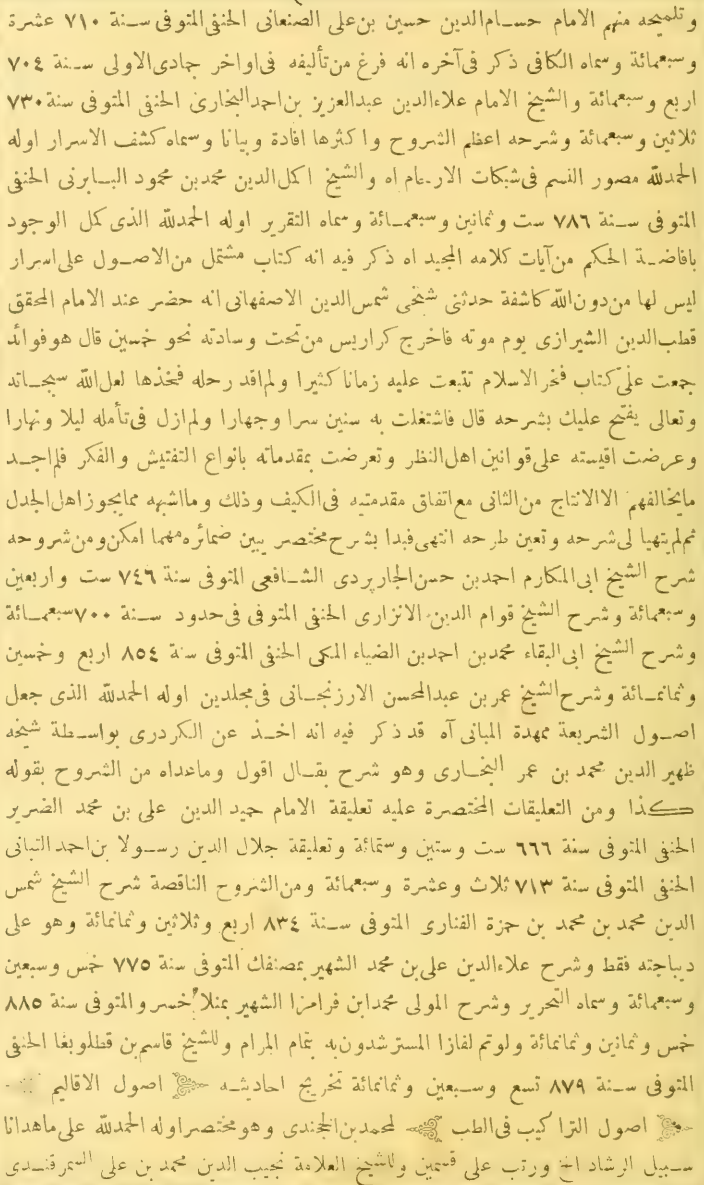 و تلميحه منهم الامام حسام الدين حسين بن على الصنعانى الحنفى المتوفى سنة ٧١٠ عشرة
وسبعمائة وسماه الكافى ذكر فى آخره انه فرغ من تأليفه فى اواخر جمادى الاولى سنة ٧٠٤
اربع وسبعمائة والشيخ الامام علاءالدين عبدالعزيز بن احمد البخارى الحنفى المتوفى سنة ٧٣٠
ثلاثين وسبعمائة وشرحه اعظم الشروح واكثرها افادة وبيانا وسماه كشف الاسرار اوله
الحمدلله مصور النسم فى شبكات الارحام اه والشيخ اكمل الدين محمدبن محمود البابرتى الحنفى
المتوفى سنة ٧٨٦ ست وثمانين وسبعمائة وسماه التقرير اوله الحمدلله الذى كمل الوجود
بافاضة الحكم من آيات كلامه المجيد اه ذكر فيه انه كتاب مشتمل من الاصول على اسرار
ليس لها من دون الله كاشفة حدثنى شيخى شمس الدين الاصفهانى انه حضر عند الامام المحقق
قطب الدين الشيرازى يوم موته فاخرج كراريس من تحت وسادته نحو خمسين قال هو فوائد
جمعت على كتاب فخر الاسلام تتبعت عليه زمانا كثيرا ولم اقد رحله فخذها لعل الله سبحانه
وتعالى يفتح عليك بشرحه قال فاشتغلت به سنين سرا وجهارا ولم ازل فى تأمله ليلا ونهارا
وعرضت اقيسته على قوانين اهل النظر وتعرضت بمقدماته بانواع التفتيش والفكر فلم اجد
مايخالفهم الا الانتاج من الثانى مع اتفاق مقدمتيه فى الكيف وذلك ومااشبهه ممايجوز اهل الجدل
ثم لم يتهيا لى شرحه وتعين طرحه انتهى فبدا بشرح مختصر يبين ضمائره مهما امكن ومن شروحه
شرح الشيخ ابى المكارم احمدبن حسن الجاربردى الشافعى المتوفى سنة ٧٤٦ ست واربعين
وسبعمائة وشرح الشيخ قوام الدين الاتزارى الحنفى المتوفى فى حدود سنة ٧٠٠ سبعمائة
وشرح الشيخ ابى البقاء محمدبن احمدبن الضياء المكى الحنفى المتوفى سنة ٨٥٤ اربع وخمسين
وثمانمائة وشرح الشيخ عمر بن عبدالمحسن الارزنجانى فى مجلدين اوله الحمدلله الذى جعل
اصول الشريعة ممهدة المبانى آه قد ذكر فيه انه اخذ عن الكردرى بواسطة شيخه
ظهير الدين محمد بن عمر البخارى وهو شرح بقال اقول وماعداه من الشروح بقوله
كذا ومن التعليقات المختصرة عليه تعليقة الامام حميد الدين على بن محمد الضرير
الحنفى المتوفى سنة ٦٦٦ ست وستين وستمائة وتعليقة جلال الدين رسولا بن احمد التبانى
الحنفى المتوفى سنة ٧١٣ ثلاث وعشرة وسبعمائة ومن الشروح الناقصة شرح الشيخ شمس
الدين محمد بن محمد بن حمزة الفنارى المتوفى سنة ٨٣٤ اربع وثلاثين وثمانمائة وهو على
ديباجته فقط وشرح علاءالدين على بن محمد الشهير بمصنفك المتوفى سنة ٧٧٥ خمس وسبعين
وسبعمائة وسماه التحرير وشرح المولى محمدابن فرامرزا الشهير بمنلا خسرو المتوفى سنة ٨٨٥
خمس وثمانين وثمانمائة ولوتم لفازا المسترشدون به بتمام المرام وللشيخ قاسم بن قطلوبغا الحنفى
المتوفى سنة ٨٧٩ تسع وسبعين وثمانمائة تخريج احاديثه اصول الاقاليم
اصول التراكيب فى الطب لمحمدبن الخجندى وهو مختصر اوله الحمدلله على ماهدانا
سبيل الرشاد اخ ورتب على قسمين وللشيخ العلامة نجيب الدين محمد بن على السمرقندى